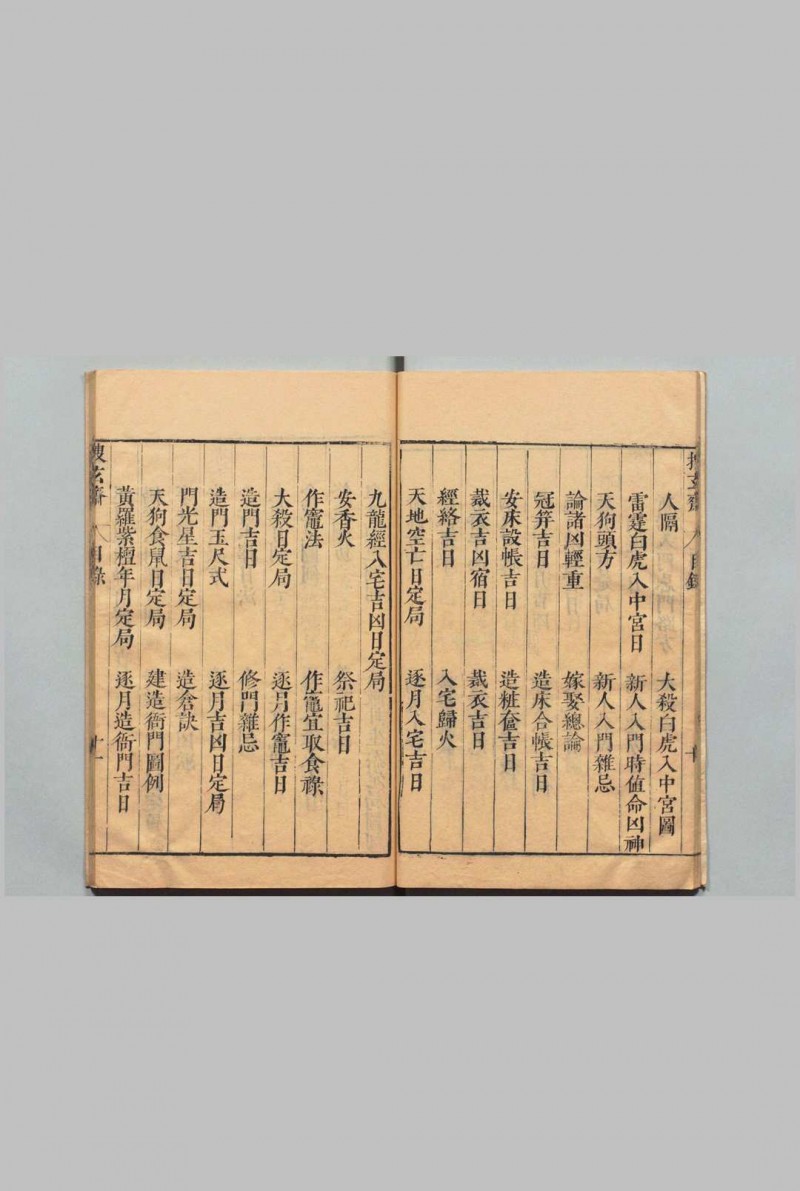 人隔 大殺白虎入中宮圖
雷霆白虎入中宮日 新人入門時值命凶神
天狗頭方 新人入門雜忌
論諸凶輕重 嫁娶總論
冠笄吉日 造床合帳吉日
安床設帳吉日 造粧奩吉日
裁衣吉凶宿日 裁衣吉日
經絡吉日 入宅歸火
天地空亡日定局 逐月入宅吉日
九龍經入宅吉凶日定局
安香火 祭祀吉日
作竈法 作竈宜取食祿
大殺日定局 逐月作竈吉日
造門吉日 修門雜忌
造門玉尺式 逐月吉凶日定局
門光星吉日定局 造倉訣
天狗食鼠日定局 建造衙門圖例
黃羅紫檀年月定局 逐月造衙門吉日
搜玄齋 目錄 十一